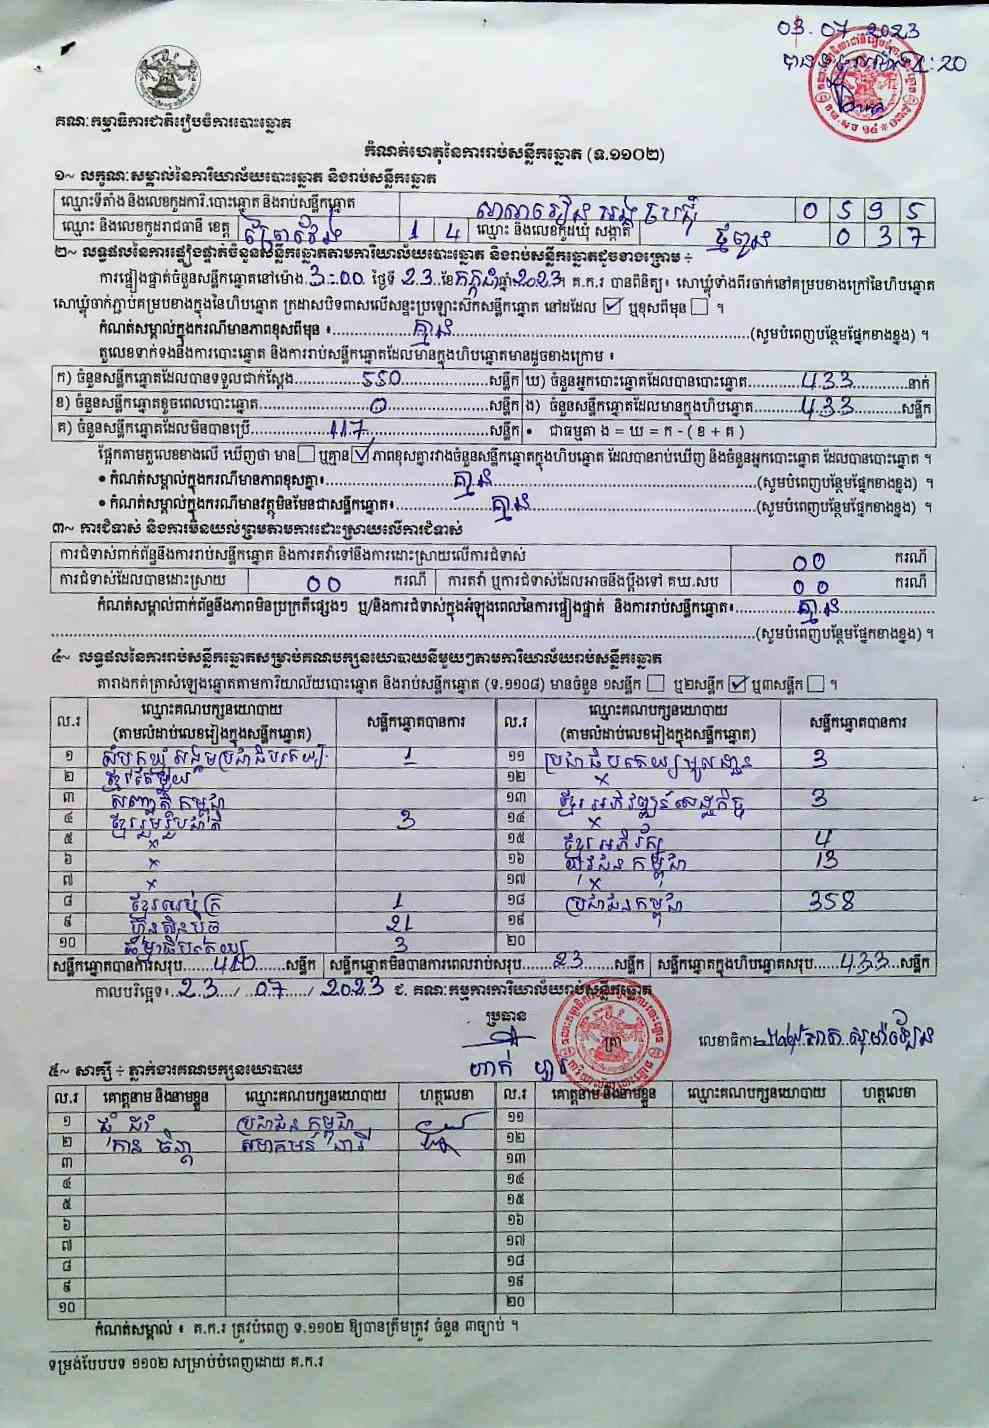 03.07 2023
គណៈកម្មាធិការជាតិរៀបចំការបោះឆ្នោត
កំណត់ហេតុនៃការរាប់សន្លឹកឆ្នោត (ទ.១១០២)
១~ លក្ខណៈសម្គាល់នៃការិយាល័យបោះឆ្នោត និងរាប់សន្លឹកឆ្នោត
ឈ្មោះទីតាំង និងលេខកូដការិ.បោះឆ្នោត និងរាប់សន្លឹកឆ្នោត សាលារៀន 0 5 9 5
ឈ្មោះ និងលេខកូដរាជធានី ខេត្ត ព្រៃវែង 1 4 ឈ្មោះ និងលេខកូដឃុំ សង្កាត់ 0 3 7
២~ លទ្ធផលនៃការផ្ទៀងផ្ទាត់ចំនួនសន្លឹកឆ្នោតតាមការិយាល័យបោះឆ្នោត និងរាប់សន្លឹកឆ្នោតដូចខាងក្រោម ÷
ការផ្ទៀងផ្ទាត់ចំនួនសន្លឹកឆ្នោតនៅម៉ោង 3:00 ថ្ងៃទី 23 ខែ កក្កដា ឆ្នាំ 2023។ គ.ក.រ បានពិនិត្យ៖ សោឃ្លុំទាំងពីរចាក់នៅគម្របខាងក្រៅនៃហិបឆ្នោត
សោឃ្លុំចាក់ភ្ជាប់គម្របខាងក្នុងនៃហិបឆ្នោត ក្រដាសបិទពាសលើសន្ទះប្រឡោះស៊កសន្លឹកឆ្នោត នៅដដែល ☑ ឬខុសពីមុន ☐ ។
កំណត់សម្គាល់ក្នុងករណីមានភាពខុសពីមុន ៖ គ្មាន (សូមបំពេញបន្ថែមផ្នែកខាងខ្នង) ។
តួលេខទាក់ទងនឹងការបោះឆ្នោត និងការរាប់សន្លឹកឆ្នោតដែលមានក្នុងហិបឆ្នោតមានដូចខាងក្រោម ៖
ក) ចំនួនសន្លឹកឆ្នោតដែលបានទទួលជាក់ស្ដែង 550 សន្លឹក ឃ) ចំនួនអ្នកបោះឆ្នោតដែលបានបោះឆ្នោត 433 នាក់
ខ) ចំនួនសន្លឹកឆ្នោតខូចពេលបោះឆ្នោត 0 សន្លឹក ង) ចំនួនសន្លឹកឆ្នោតដែលមានក្នុងហិបឆ្នោត 433 សន្លឹក
គ) ចំនួនសន្លឹកឆ្នោតដែលមិនបានប្រើ 117 សន្លឹក • ជាធម្មតា ង = ឃ = ក - ( ខ + គ )
ផ្អែកតាមតួលេខខាងលើ ឃើញថា មាន ☐ ឬគ្មាន ☑ ភាពខុសគ្នារវាងចំនួនសន្លឹកឆ្នោតក្នុងហិបឆ្នោត ដែលបានរាប់ឃើញ និងចំនួនអ្នកបោះឆ្នោត ដែលបានបោះឆ្នោត ។
• កំណត់សម្គាល់ក្នុងករណីមានភាពខុសគ្នា៖ គ្មាន (សូមបំពេញបន្ថែមផ្នែកខាងខ្នង) ។
• កំណត់សម្គាល់ក្នុងករណីមានវត្ថុមិនមែនជាសន្លឹកឆ្នោត៖ គ្មាន (សូមបំពេញបន្ថែមផ្នែកខាងខ្នង) ។
៣~ ការជំទាស់ និងការមិនយល់ព្រមតាមការដោះស្រាយលើការជំទាស់
ការជំទាស់ពាក់ព័ន្ធនឹងការរាប់សន្លឹកឆ្នោត និងការតវ៉ាទៅនឹងការដោះស្រាយលើការជំទាស់ 00 ករណី
ការជំទាស់ដែលបានដោះស្រាយ 00 ករណី ការតវ៉ា ឬការជំទាស់ដែលអាចនឹងប្ដឹងទៅ គឃ.សប 00 ករណី
កំណត់សម្គាល់ពាក់ព័ន្ធនឹងភាពមិនប្រក្រតីផ្សេងៗ ឬ/និងការជំទាស់ក្នុងអំឡុងពេលនៃការផ្ទៀងផ្ទាត់ និងការរាប់សន្លឹកឆ្នោត៖ គ្មាន
(សូមបំពេញបន្ថែមផ្នែកខាងខ្នង) ។
៤~ លទ្ធផលនៃការរាប់សន្លឹកឆ្នោតសម្រាប់គណបក្សនយោបាយនីមួយៗតាមការិយាល័យរាប់សន្លឹកឆ្នោត
តារាងកត់ត្រាសំឡេងឆ្នោតតាមការិយាល័យបោះឆ្នោត និងរាប់សន្លឹកឆ្នោត (ទ.១១០៨) មានចំនួន ១សន្លឹក ☐ ឬ២សន្លឹក ☑ ឬ៣សន្លឹក ☐ ។
ល.រ ឈ្មោះគណបក្សនយោបាយ (តាមលំដាប់លេខរៀងក្នុងសន្លឹកឆ្នោត) សន្លឹកឆ្នោតបានការ ល.រ ឈ្មោះគណបក្សនយោបាយ (តាមលំដាប់លេខរៀងក្នុងសន្លឹកឆ្នោត) សន្លឹកឆ្នោតបានការ
១ សំបុកឃ្មុំសង្គមប្រជាធិបតេយ្យ 1 ១១ ប្រជាធិបតេយ្យមូលដ្ឋាន 3
២ ខ្មែរតែមួយ ១២ x
៣ សញ្ជាតិកម្ពុជា ១៣ ខ្មែរអភិវឌ្ឍន៍សេដ្ឋកិច្ច 3
៤ ខ្មែររួបរួមជាតិ 3 ១៤ x
៥ x ១៥ ខ្មែរអភិរក្ស 4
៦ x ១៦ យុវជនកម្ពុជា 13
៧ x ១៧ x
៨ ខ្មែរឈប់ក្រ 1 ១៨ ប្រជាជនកម្ពុជា 358
៩ ហ៊្វុនស៊ិនប៉ិច 21 ១៩
១០ ធម្មាធិបតេយ្យ 3 ២០
សន្លឹកឆ្នោតបានការសរុប 410 សន្លឹក សន្លឹកឆ្នោតមិនបានការពេលរាប់សរុប 23 សន្លឹក សន្លឹកឆ្នោតក្នុងហិបឆ្នោតសរុប 433 សន្លឹក
កាលបរិច្ឆេទ៖ 23 / 07 / 2023 ជ. គណៈកម្មការការិយាល័យរាប់សន្លឹកឆ្នោត
ប្រធាន
លេខាធិការ
៥~ សាក្សី ÷ ភ្នាក់ងារគណបក្សនយោបាយ
ល.រ គោត្តនាម និងនាមខ្លួន ឈ្មោះគណបក្សនយោបាយ ហត្ថលេខា ល.រ គោត្តនាម និងនាមខ្លួន ឈ្មោះគណបក្សនយោបាយ ហត្ថលេខា
១ ប្រជាជនកម្ពុជា ១១
២ សមាគមន៍នារី ១២
៣ ១៣
៤ ១៤
៥ ១៥
៦ ១៦
៧ ១៧
៨ ១៨
៩ ១៩
១០ ២០
កំណត់សម្គាល់ ៖ គ.ក.រ ត្រូវបំពេញ ទ.១១០២ ឱ្យបានត្រឹមត្រូវ ចំនួន ៣ច្បាប់ ។
ទម្រង់បែបបទ ១១០២ សម្រាប់បំពេញដោយ គ.ក.រ